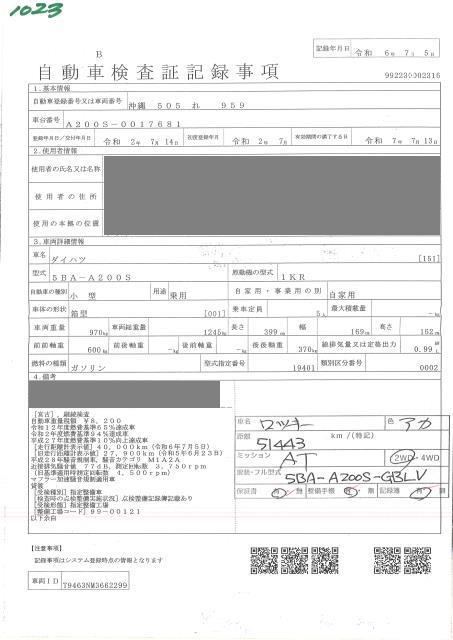 1023
B
記録年月日 令和 6年 7月 5日
自動車検査証記録事項
992230002316
1.基本情報
自動車登録番号又は車両番号 沖縄 505 れ 959
車台番号 A200S-0017681
登録年月日/交付年月日 令和 2年 7月 14日 初度登録年月 令和 2年 7月 有効期間の満了する日 令和 7年 7月 13日
2.使用者情報
使用者の氏名又は名称
使用者の住所
使用の本拠の位置
3.車両詳細情報
車名 ダイハツ [151]
型式 5BA-A200S 原動機の型式 1KR
自動車の種別 小型 用途 乗用 自家用・事業用の別 自家用
車体の形状 箱型 [001] 乗車定員 5人 最大積載量 -kg
車両重量 970kg 車両総重量 1245kg 長さ 399cm 幅 169cm 高さ 162cm
前前軸重 600kg 前後軸重 -kg 後前軸重 -kg 後後軸重 370kg 総排気量又は定格出力 0.99L
燃料の種類 ガソリン 型式指定番号 19401 類別区分番号 0002
4.備考
[宮古], 継続検査
自動車重量税額 ¥8,200
令和12年度燃費基準65%達成車
令和2年度燃費基準94%達成車
平成27年度燃費基準10%向上達成車
[走行距離計表示値] 40,000km(令和6年7月5日)
[旧走行距離計表示値] 27,900km(令和5年6月23日)
平成28年騒音規制車, 騒音カテゴリ M1A2A
近接排気騒音値 77dB, 測定回転数 3,750rpm
(旧基準適用時測定回転数 4,500rpm)
マフラー加速騒音規制適用車
貸渡
[受検種別] 指定整備車
[検査時の点検整備実施状況] 点検整備記録簿記載あり
[受検形態] 指定整備工場
[整備工場コード] 99-00121
以下余白
車名 ロッキー 色 アカ
距離 51443 km/(特記)
ミッション AT 2WD・4WD
型式・フル型式 5BA-A200S-GBLV
保証書 有・無 整備手帳 有・無 記録簿 有・無
【注意事項】
記録事項はシステム登録時点の情報となります
車両ID T9463NM3662299